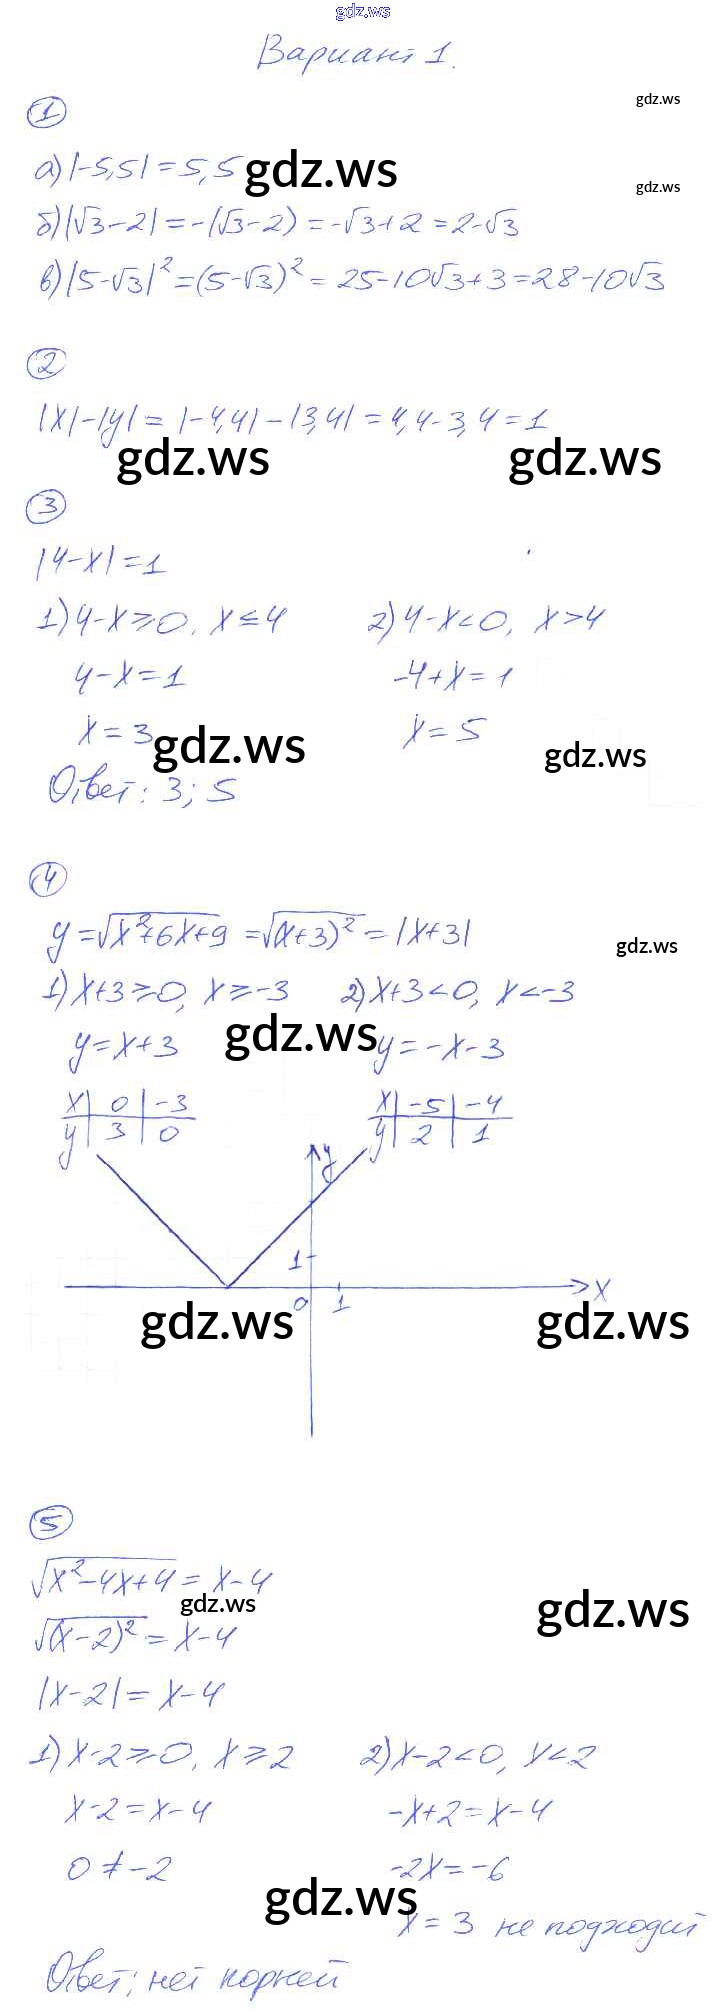 gdz.ws
Вариант 1.
gdz.ws
1
а) |-5,5| = 5,5 gdz.ws
gdz.ws
б) |√3-2| = -(√3-2) = -√3+2 = 2-√3
в) |5-√3|² = (5-√3)² = 25-10√3+3 = 28-10√3
2
|x|-|y| = |-4,4| - |3,4| = 4,4-3,4 = 1
gdz.ws gdz.ws
3
|4-x| = 1
1) 4-x ≥ 0, x ≤ 4 2) 4-x < 0, x > 4
4-x = 1 -4+x = 1
x = 3 gdz.ws x = 5 gdz.ws
Ответ: 3; 5
4
y = √x²+6x+9 = √(x+3)² = |x+3|
gdz.ws
1) x+3 ≥ 0, x ≥ -3 2) x+3 < 0, x < -3
y = x+3 gdz.ws y = -x-3
x | 0 | -3 x | -5 | -4
y | 3 | 0 y | 2 | 1
y
1
x
0 1
gdz.ws gdz.ws
5
√x²-4x+4 = x-4
gdz.ws gdz.ws
√(x-2)² = x-4
|x-2| = x-4
1) x-2 ≥ 0, x ≥ 2 2) x-2 < 0, x < 2
x-2 = x-4 -x+2 = x-4
0 ≠ -2 -2x = -6
gdz.ws
x = 3 не подходит
Ответ: нет корней